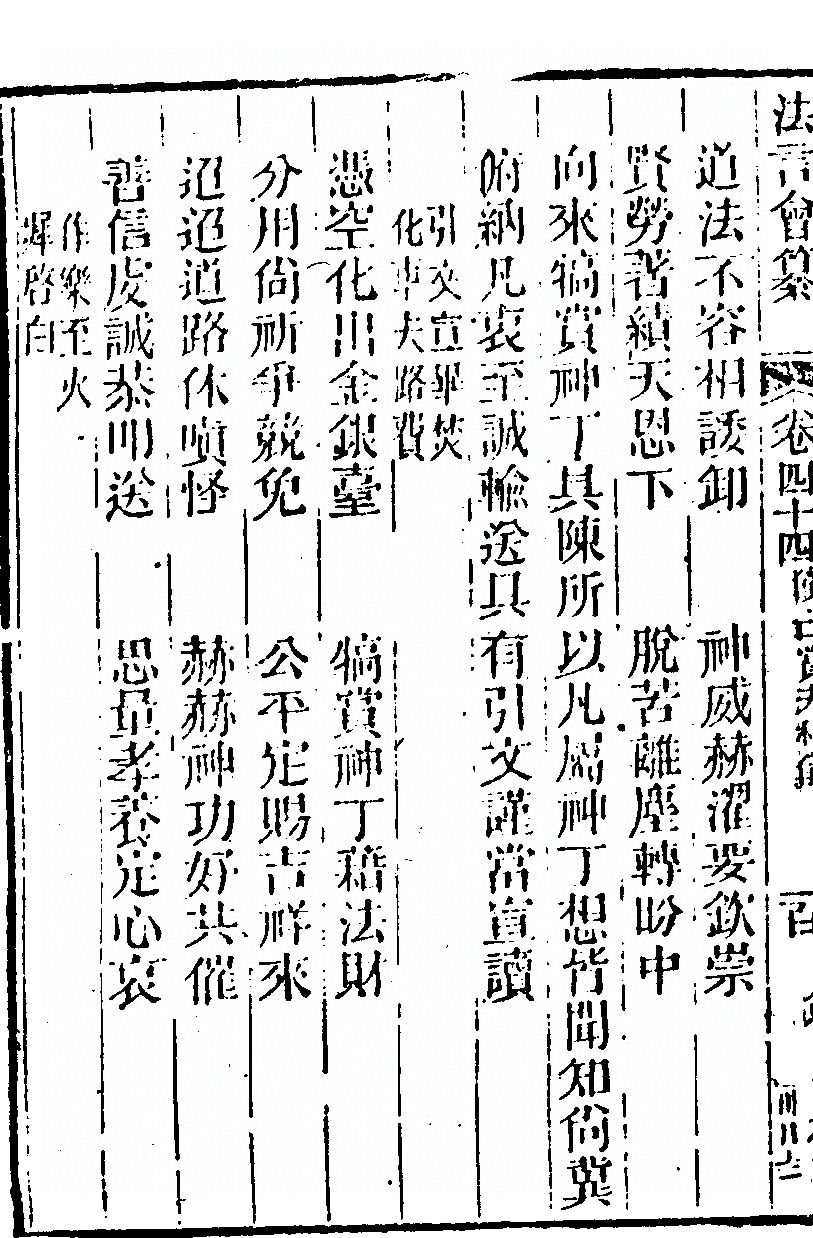 法言會纂 卷四十四
道法不容相諉卸 神威赫濯要欽崇
賢勞著績天恩下 脫苦離塵轉盼中
向來犒賞神丁具陳所以凡屬神丁想皆聞知尚冀
俯納凡衷至誠輸送具有引文謹當宣讀
引文宣畢焚
化車夫路費
憑空化出金銀臺 犒賞神丁藉法財
分用尚祈爭競免 公平定賜吉祥來
迢迢道路休嗔怪 赫赫神功好共催
善信虔誠恭叩送 思量孝養定心哀
作樂至火
墀啓白